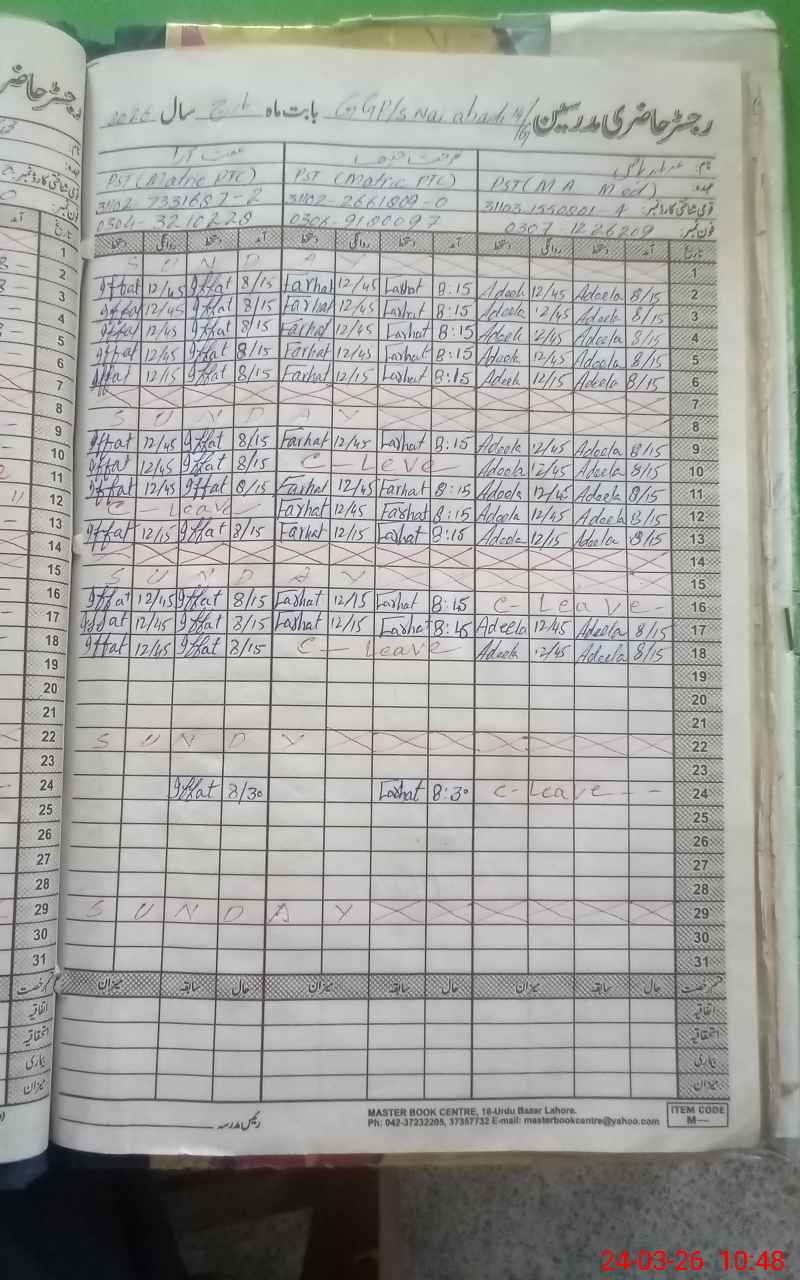 رجسٹر حاضری مدرسین GGP/s Nai abadi بابت ماہ مارچ سال 2026
نام:
عہدہ: PST (M A Med) PST (Matric PTC) PST (Matric PTC)
قومی شناختی کارڈ نمبر: 31103 1550801-4 31102-2661809-0 31102 7331687-2
فون نمبر: 0307-1226209 0306-9180097 0304-3210228
تاریخ آمد دستخط روانگی دستخط آمد دستخط روانگی دستخط آمد دستخط روانگی دستخط
SUNDAY 1
Iffat 12/45 Iffat 8/15 Farhat 12/45 Farhat 8:15 Adeela 12/45 Adeela 8/15 2
Iffat 12/45 Iffat 8/15 Farhat 12/45 Farhat 8:15 Adeela 12/45 Adeela 8/15 3
Iffat 12/45 Iffat 8/15 Farhat 12/45 Farhat 8:15 Adeela 12/45 Adeela 8/15 4
Iffat 12/45 Iffat 8/15 Farhat 12/45 Farhat 8:15 Adeela 12/45 Adeela 8/15 5
Iffat 12/15 Iffat 8/15 Farhat 12/15 Farhat 8:15 Adeela 12/15 Adeela 8/15 6
7
SUNDAY 8
Iffat 12/45 Iffat 8/15 Farhat 12/45 Farhat 8:15 Adeela 12/45 Adeela 8/15 9
Iffat 12/45 Iffat 8/15 C-Leve Adeela 12/45 Adeela 8/15 10
Iffat 12/45 Iffat 8/15 Farhat 12/45 Farhat 8:15 Adeela 12/45 Adeela 8/15 11
C-Leave Farhat 12/45 Farhat 8:15 Adeela 12/45 Adeela 8/15 12
Iffat 12/15 Iffat 8/15 Farhat 12/15 Farhat 8:15 Adeela 12/15 Adeela 8/15 13
14
SUNDAY 15
Iffat 12/45 Iffat 8/15 Farhat 12/15 Farhat 8:15 C-Leave- 16
Iffat 12/45 Iffat 8/15 Farhat 12/15 Farhat 8:15 Adeela 12/45 Adeela 8/15 17
Iffat 12/45 Iffat 8/15 C-Leave Adeela 12/45 Adeela 8/15 18
19
20
21
SUNDY 22
23
Iffat 8/30 Farhat 8:30 C-Leave-- 24
25
26
27
28
SUNDAY 29
30
31
قسم رخصت حال سابقہ میزان حال سابقہ میزان حال سابقہ میزان
اتفاقیہ
استحقاقیہ
بیماری
میزان
رئیس مدرسہ
MASTER BOOK CENTRE, 16-Urdu Bazar Lahore.
Ph: 042-37232205, 37357732 E-mail: masterbookcentre@yahoo.com
ITEM CODE
M—
24-03-26 10:48